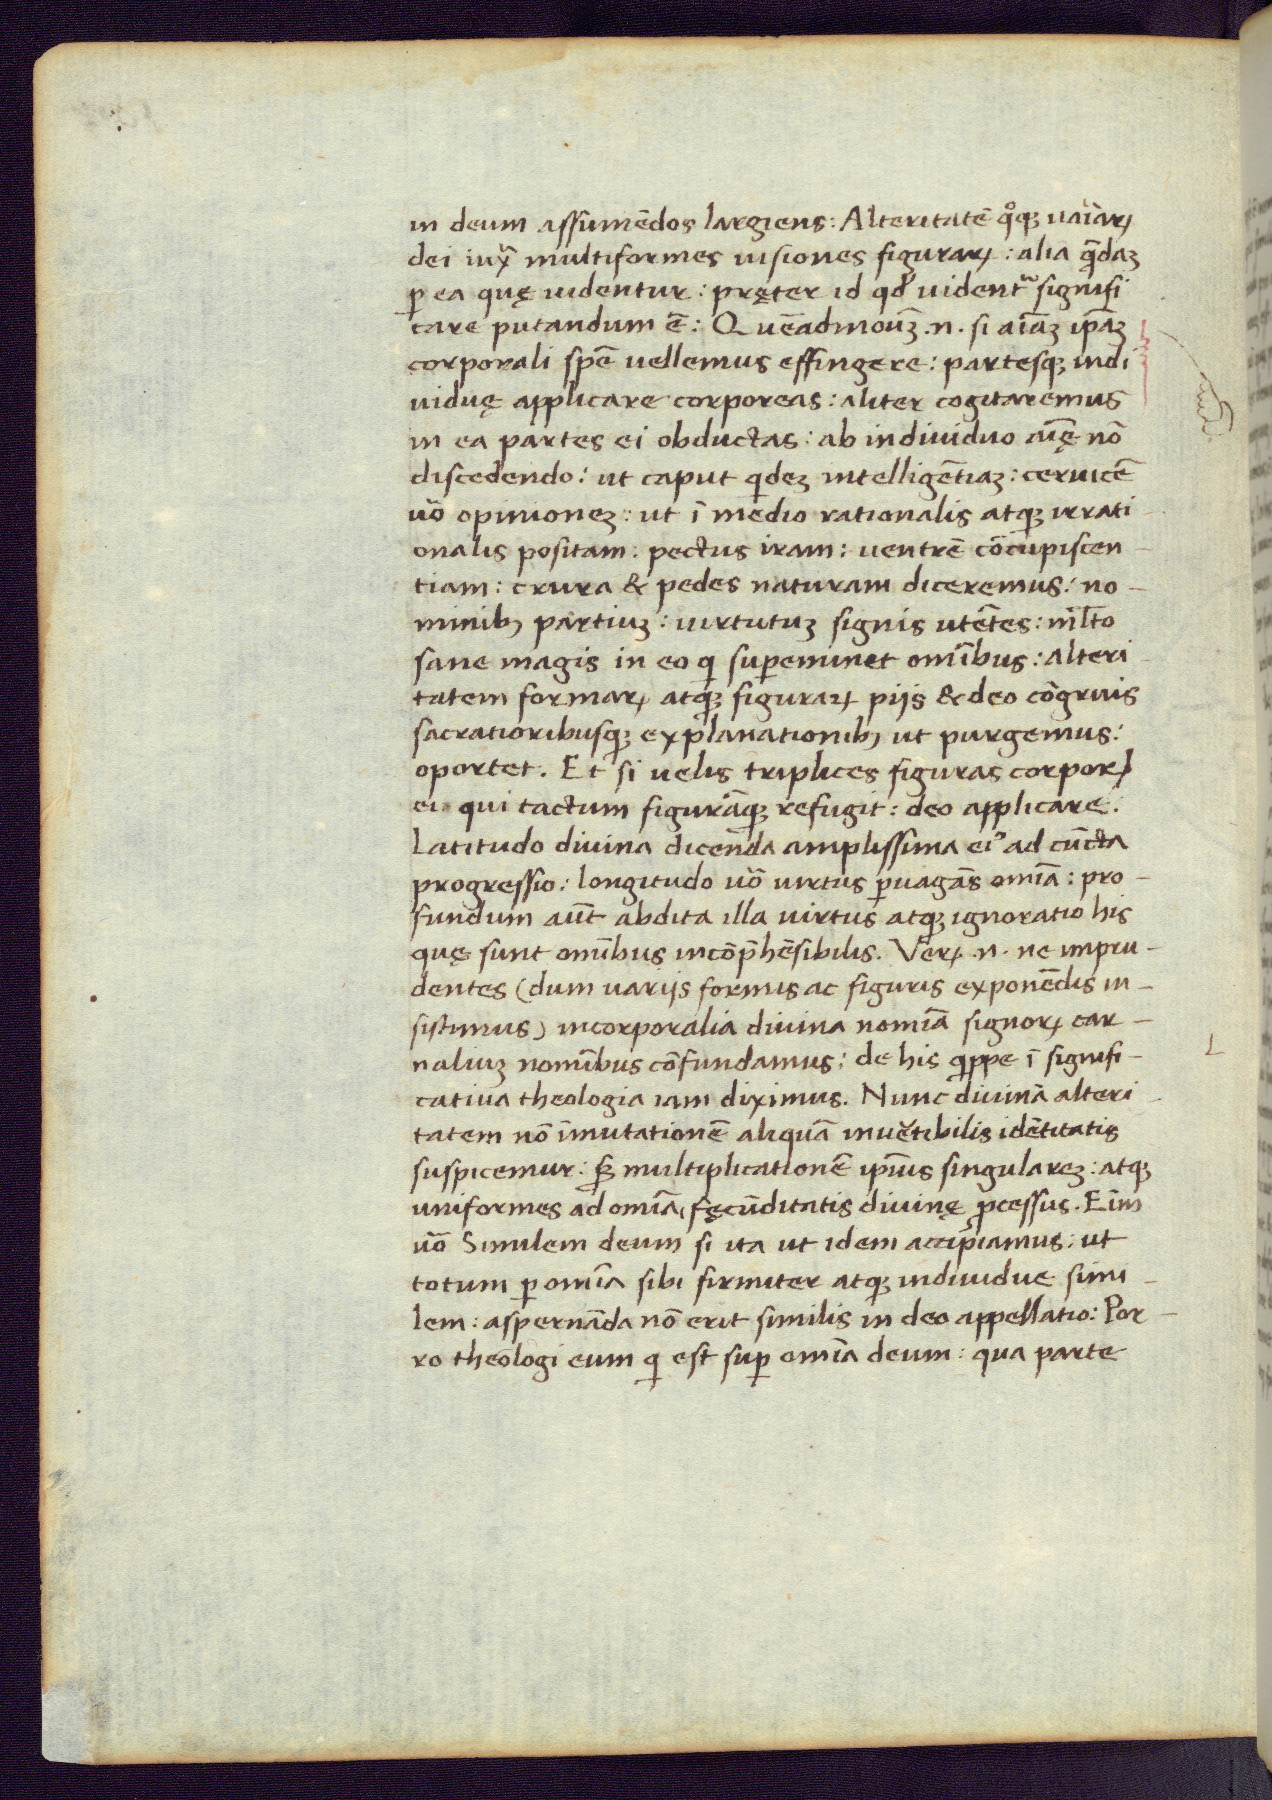 in deum assumēdos largiens: Alteritatē qͦqꝫ uaꝛiaꝝ
dei iuxͣ multiformes uisiones figuraꝝ: alia q̄daꝫ
ꝑ ea quę uidentur: pręter id qđ uident᷑ signifi
care putandum ē: Quēadmodū .n. si aīaꝫ ip̄aꝫ
corporali sp̄e uellemus effingere: partesqꝫ indi
uiduę applicare corporeas: aliter cogitaremus
in ea partes ei obductas: ab indiuiduo aīę nō
discedendo: ut caput qdeꝫ intelligētiaꝫ: ceruicē
uō opinioneꝫ: ut ī medio rationalis atqꝫ irrati
onalis positam: pectus iram: uentrē cōcupiscen-
tiam: crura & pedes naturam diceremus: no-
minibꝫ partiuꝫ: uirtutuꝫ signis utētes: ml̄to
sane magis in eo q suꝑeminet omībus: alteri-
tatem formaꝝ atqꝫ figuraꝝ piis & deo cōgruis
sacratioribusqꝫ explanationibꝫ ut purgemus:
oportet. Et si uelis triplices figuras corpoꝝ
ei qui tactum figurāqꝫ refugit: deo applicare:
Latitudo diuina dicenda amplissima eiꝰ ad cūcta
progressio: longitudo uō uirtus ꝑuagās omīa: pro-
fundum aūt abdita illa uirtus atqꝫ ignoratio his
quę sunt omībus incōp̄hēsibilis. Veꝝ .n. ne impru-
dentes (dum uariis formis ac figuris exponēdis in-
sistimus) incorporalia diuina nomīa signoꝝ car-
naliuꝫ nomībus cōfundamus: de his qppe ī signifi-
catiua theologia iam diximus. Nunc diuinā alteri-
tatem nō īmutationē aliquā inuētibilis idētitatis
suspicemur: sꝫ multiplicationē ip̄ius singulareꝫ: atqꝫ
uniformes ad omīa, fęcūditatis diuinę ꝓcessus. Eīm
uō Similem deum si ita ut idem accipiamus: ut
totum ꝑ omīa sibi firmiter atqꝫ indiuidue simi-
lem: aspernāda nō erit similis in deo appellatio: Por-
ro theologi eum q est suꝑ omīa deum: qua parte